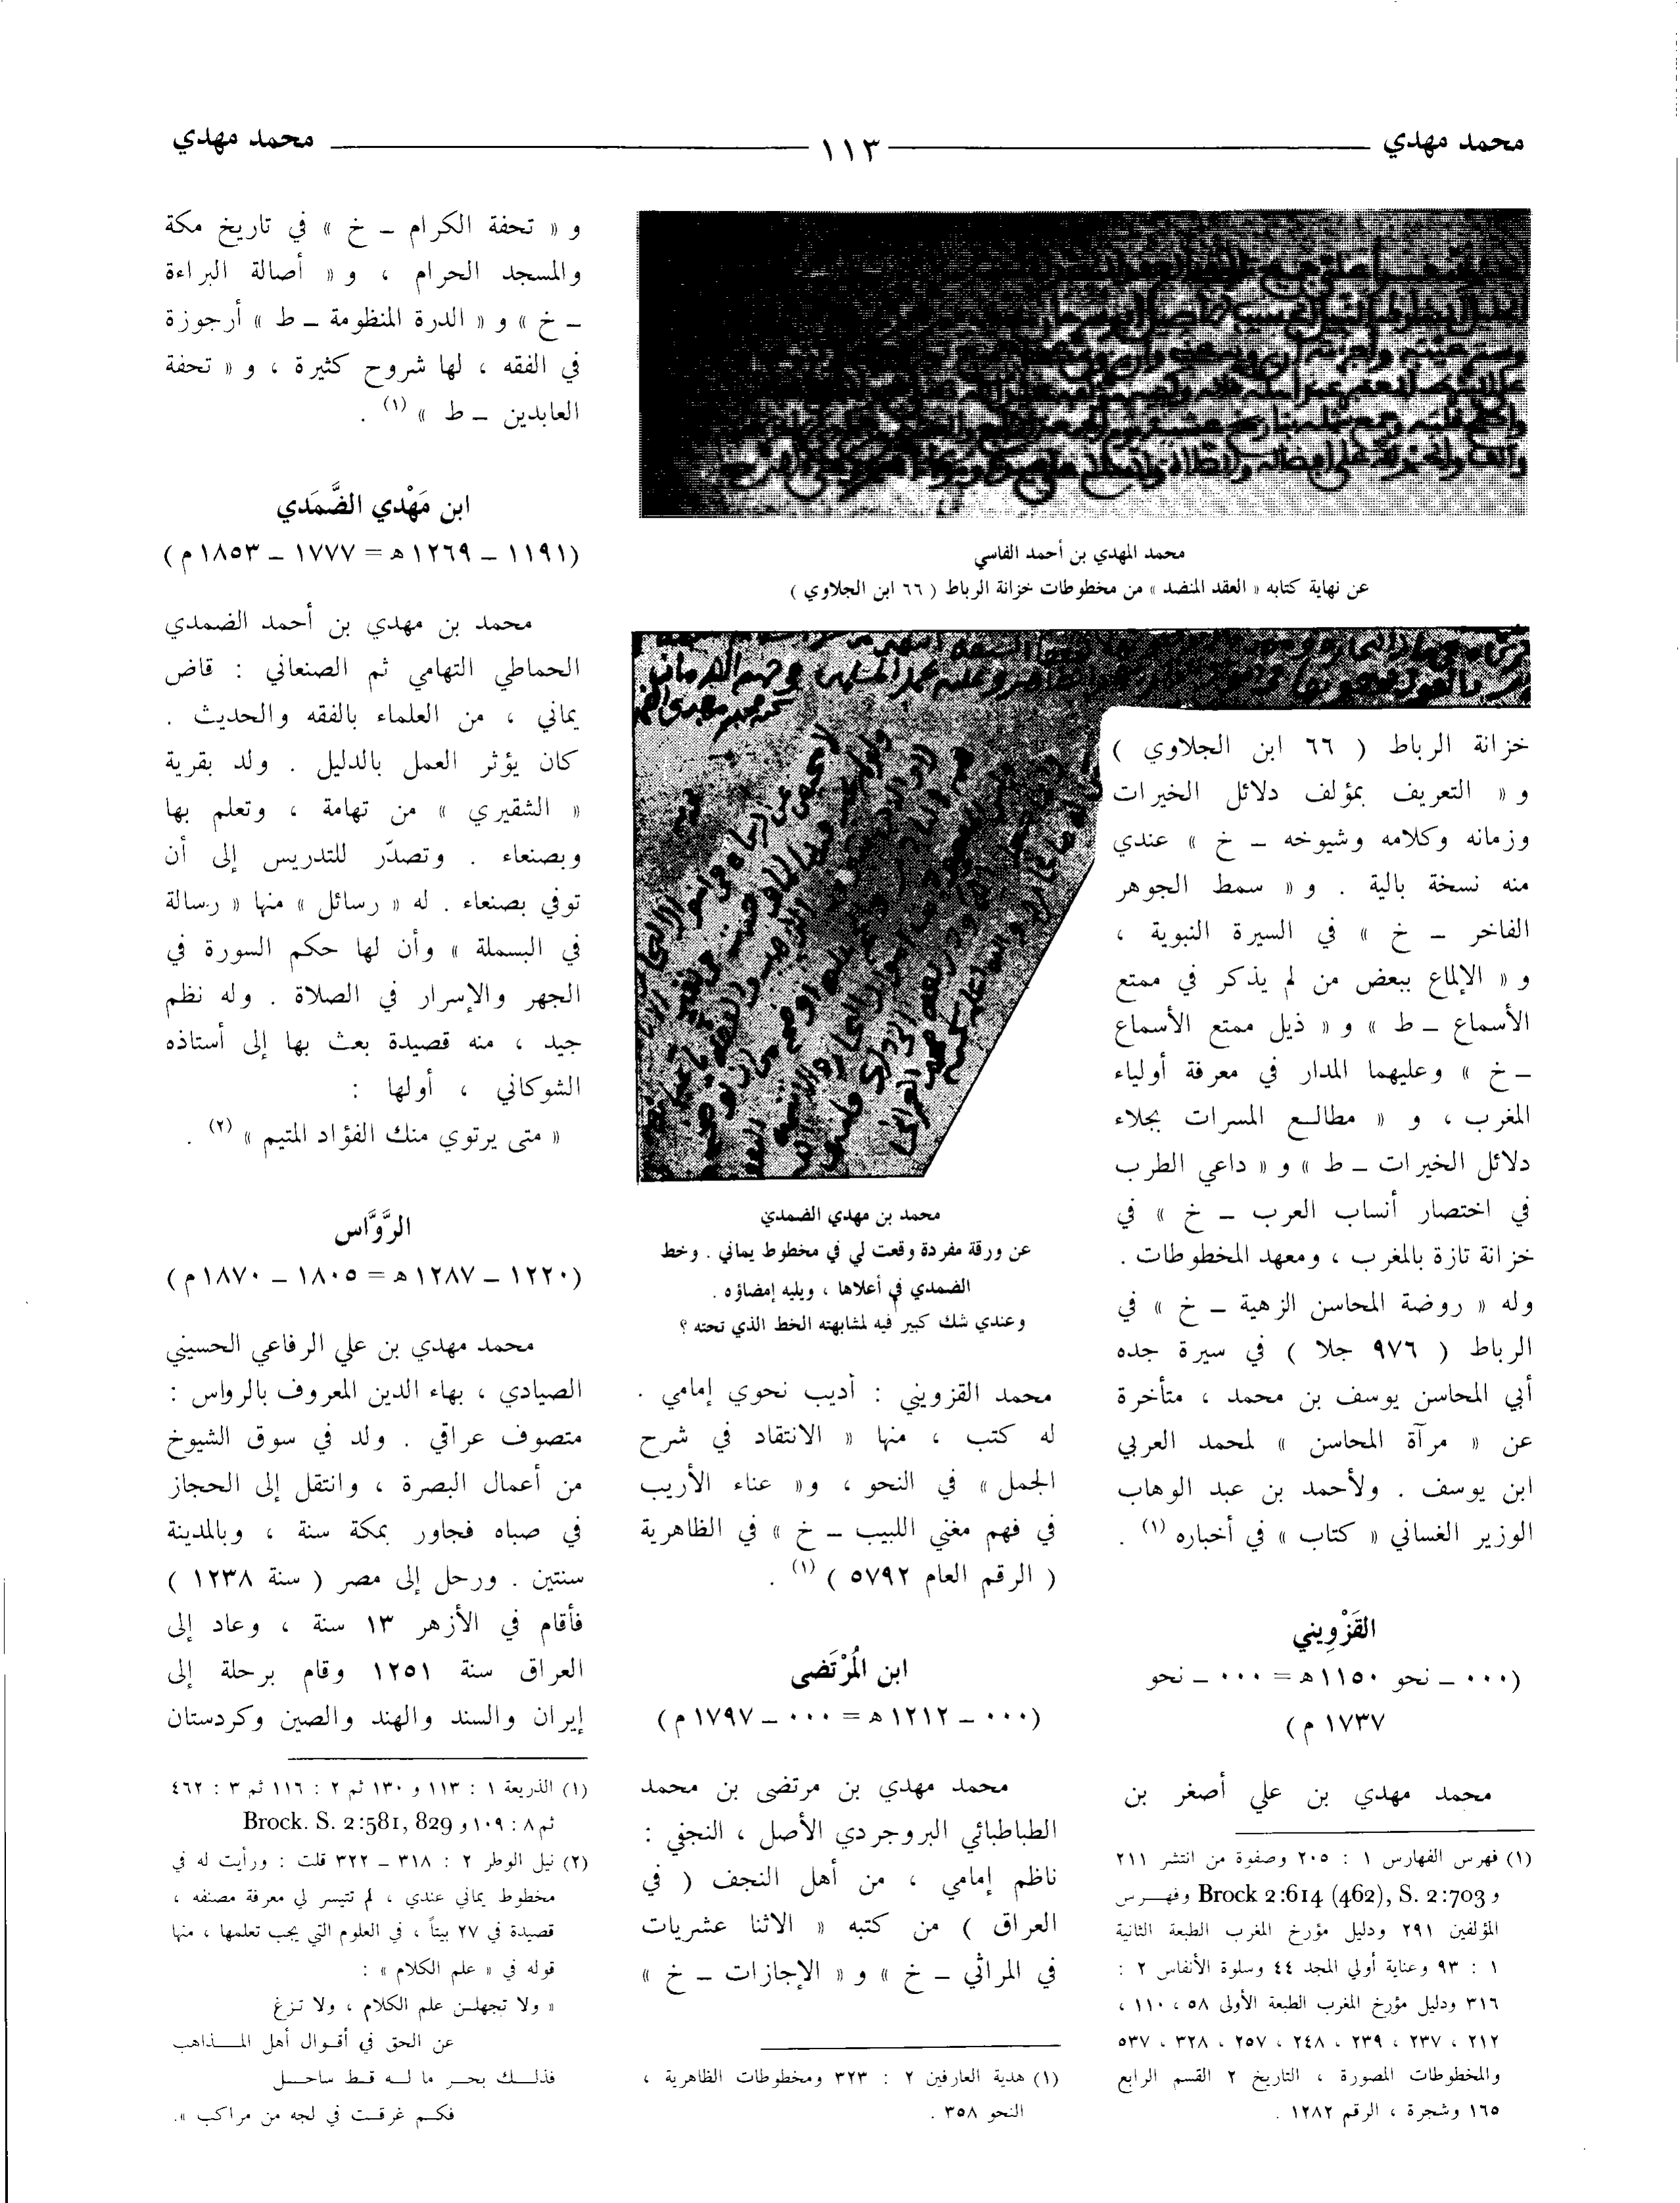 محمد مهدي ١١٣ محمد مهدي
محمد المهدي بن أحمد الفاسي
عن نهاية كتابه « العقد المنضد » من مخطوطات خزانة الرباط ( ٦٦ ابن الجلاوي )
خزانة الرباط ( ٦٦ ابن الجلاوي )
و « التعريف بمؤلف دلائل الخيرات
وزمانه وكلامه وشيوخه ــ خ » عندي
منه نسخة بالية . و « سمط الجوهر
الفاخر ــ خ » في السيرة النبوية ،
و « الإلماع ببعض من لم يذكر في ممتع
الأسماع ــ ط » و « ذيل ممتع الأسماع
ــ خ » وعليهما المدار في معرفة أولياء
المغرب ، و « مطالع المسرات بجلاء
دلائل الخيرات ــ ط » و « داعي الطرب
في اختصار أنساب العرب ــ خ » في
خزانة تازة بالمغرب ، ومعهد المخطوطات .
وله « روضة المحاسن الزهية ــ خ » في
الرباط ( ٩٧٦ جلا ) في سيرة جده
أبي المحاسن يوسف بن محمد ، متأخرة
عن « مرآة المحاسن » لمحمد العربي
ابن يوسف . ولأحمد بن عبد الوهاب
الوزير الغساني « كتاب » في أخباره (١) .
القَزْوِيني
(٠٠٠ ــ نحو ١١٥٠ ه = ٠٠٠ ــ نحو
١٧٣٧ م)
محمد مهدي بن علي أصغر بن
(١) فهرس الفهارس ١ : ٢٠٥ وصفوة من انتشر ٢١١
و Brock 2:614 (462), S. 2:703 وفهرس
المؤلفين ٢٩١ ودليل مؤرخ المغرب الطبعة الثانية
١ : ٩٣ وعناية أولي المجد ٤٤ وسلوة الأنفاس ٢ :
٣١٦ ودليل مؤرخ المغرب الطبعة الأولى ٥٨ ، ١١٠ ،
٢١٢ ، ٢٣٧ ، ٢٣٩ ، ٢٤٨ ، ٢٥٧ ، ٣٢٨ ، ٥٣٧
والمخطوطات المصورة ، التاريخ ٢ القسم الرابع
١٦٥ وشجرة ، الرقم ١٢٨٢ .
محمد بن مهدي الضمدي
عن ورقة مفردة وقعت لي في مخطوط يماني . وخط
الضمدي في أعلاها ، ويليه إمضاؤه .
وعندي شك كبير فيه لمشابهته الخط الذي تحته ؟
محمد القزويني : أديب نحوي إمامي .
له كتب ، منها « الانتقاد في شرح
الجمل » في النحو ، و« عناء الأريب
في فهم مغني اللبيب ــ خ » في الظاهرية
( الرقم العام ٥٧٩٢ ) (١) .
ابن المُرْتَضى
(٠٠٠ ــ ١٢١٢ ه = ٠٠٠ ــ ١٧٩٧ م)
محمد مهدي بن مرتضى بن محمد
الطباطبائي البروجردي الأصل ، النجفي :
ناظم إمامي ، من أهل النجف ( في
العراق ) من كتبه « الاثنا عشريات
في المراثي ــ خ » و « الإجازات ــ خ »
(١) هدية العارفين ٢ : ٣٢٣ ومخطوطات الظاهرية ،
النحو ٣٥٨ .
و « تحفة الكرام ــ خ » في تاريخ مكة
والمسجد الحرام ، و « أصالة البراءة
ــ خ » و « الدرة المنظومة ــ ط » أرجوزة
في الفقه ، لها شروح كثيرة ، و « تحفة
العابدين ــ ط » (١) .
ابن مَهْدي الضَّمَدي
(١١٩١ ــ ١٢٦٩ ه = ١٧٧٧ ــ ١٨٥٣ م)
محمد بن مهدي بن أحمد الضمدي
الحماطي التهامي ثم الصنعاني : قاض
يماني ، من العلماء بالفقه والحديث .
كان يؤثر العمل بالدليل . ولد بقرية
« الشقيري » من تهامة ، وتعلم بها
وبصنعاء . وتصدّر للتدريس إلى أن
توفي بصنعاء . له « رسائل » منها « رسالة
في البسملة » وأن لها حكم السورة في
الجهر والإسرار في الصلاة . وله نظم
جيد ، منه قصيدة بعث بها إلى أستاذه
الشوكاني ، أولها :
« متى يرتوي منك الفؤاد المتيم » (٢) .
الرَّوَّاس
(١٢٢٠ ــ ١٢٨٧ ه = ١٨٠٥ ــ ١٨٧٠ م)
محمد مهدي بن علي الرفاعي الحسيني
الصيادي ، بهاء الدين المعروف بالرواس :
متصوف عراقي . ولد في سوق الشيوخ
من أعمال البصرة ، وانتقل إلى الحجاز
في صباه فجاور بمكة سنة ، وبالمدينة
سنتين . ورحل إلى مصر ( سنة ١٢٣٨ )
فأقام في الأزهر ١٣ سنة ، وعاد إلى
العراق سنة ١٢٥١ وقام برحلة إلى
إيران والسند والهند والصين وكردستان
(١) الذريعة ١ : ١١٣ و ١٣٠ ثم ٢ : ١١٦ ثم ٣ : ٤٦٢
ثم ٨ : ١٠٩ و Brock. S. 2:581, 829
(٢) نيل الوطر ٢ : ٣١٨ ــ ٣٢٢ قلت : ورأيت له في
مخطوط يماني عندي ، لم تتيسر لي معرفة مصنفه ،
قصيدة في ٢٧ بيتاً ، في العلوم التي يجب تعلمها ، منها
قوله في « علم الكلام » :
« ولا تجهلن علم الكلام ، ولا تزغ
عن الحق في أقوال أهل المذاهب
فذلك بحر ما له قط ساحل
فكم غرقت في لجه من مراكب ».